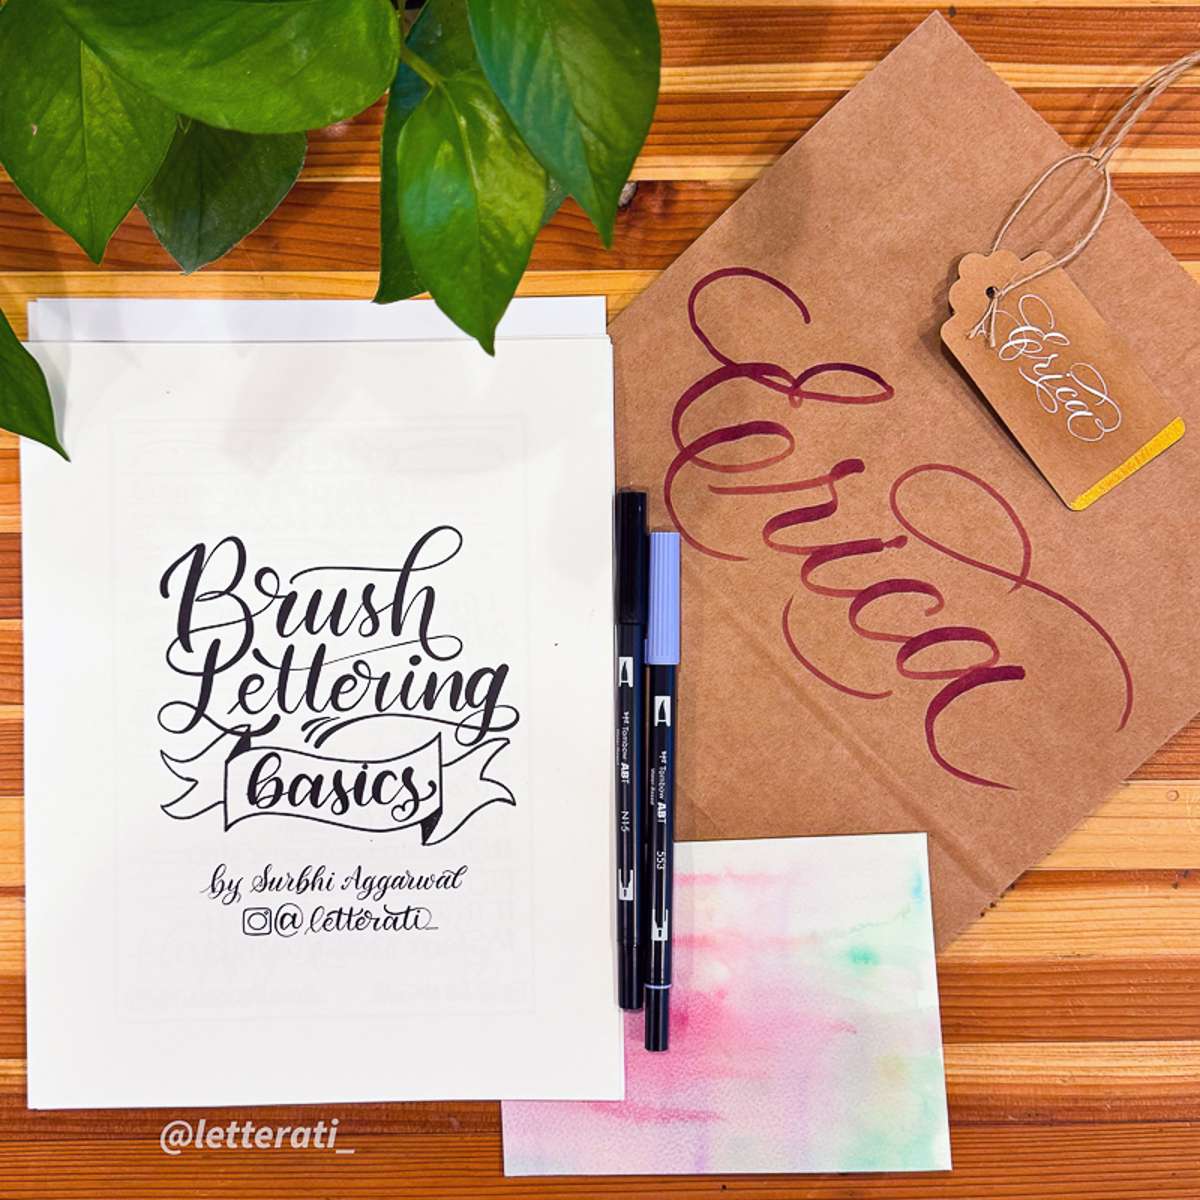 Brush
Lettering
basics
by Surbhi Aggarwal
@letterati_
Erica
Erica
Tombow ABT
N15
Tombow ABT
553
@letterati_